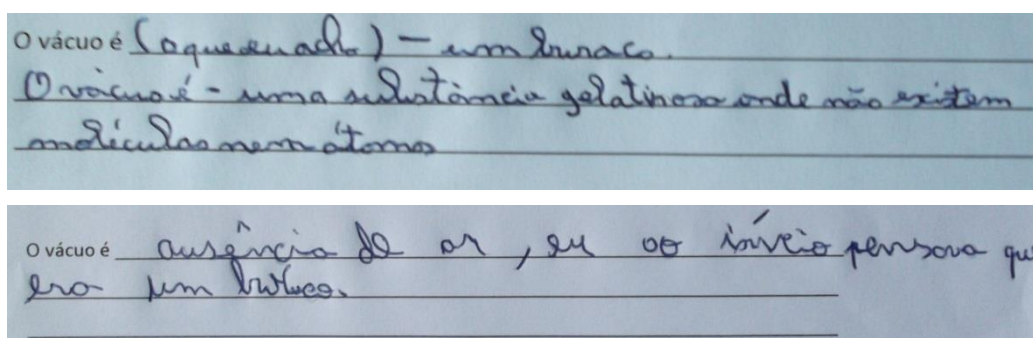 O vácuo é (o que eu acho) - um buraco.
O vácuo é - uma substância gelatinosa onde não existem
moléculas nem átomos
O vácuo é ausência de ar, eu ao invéio pensava qu
era um buraco.